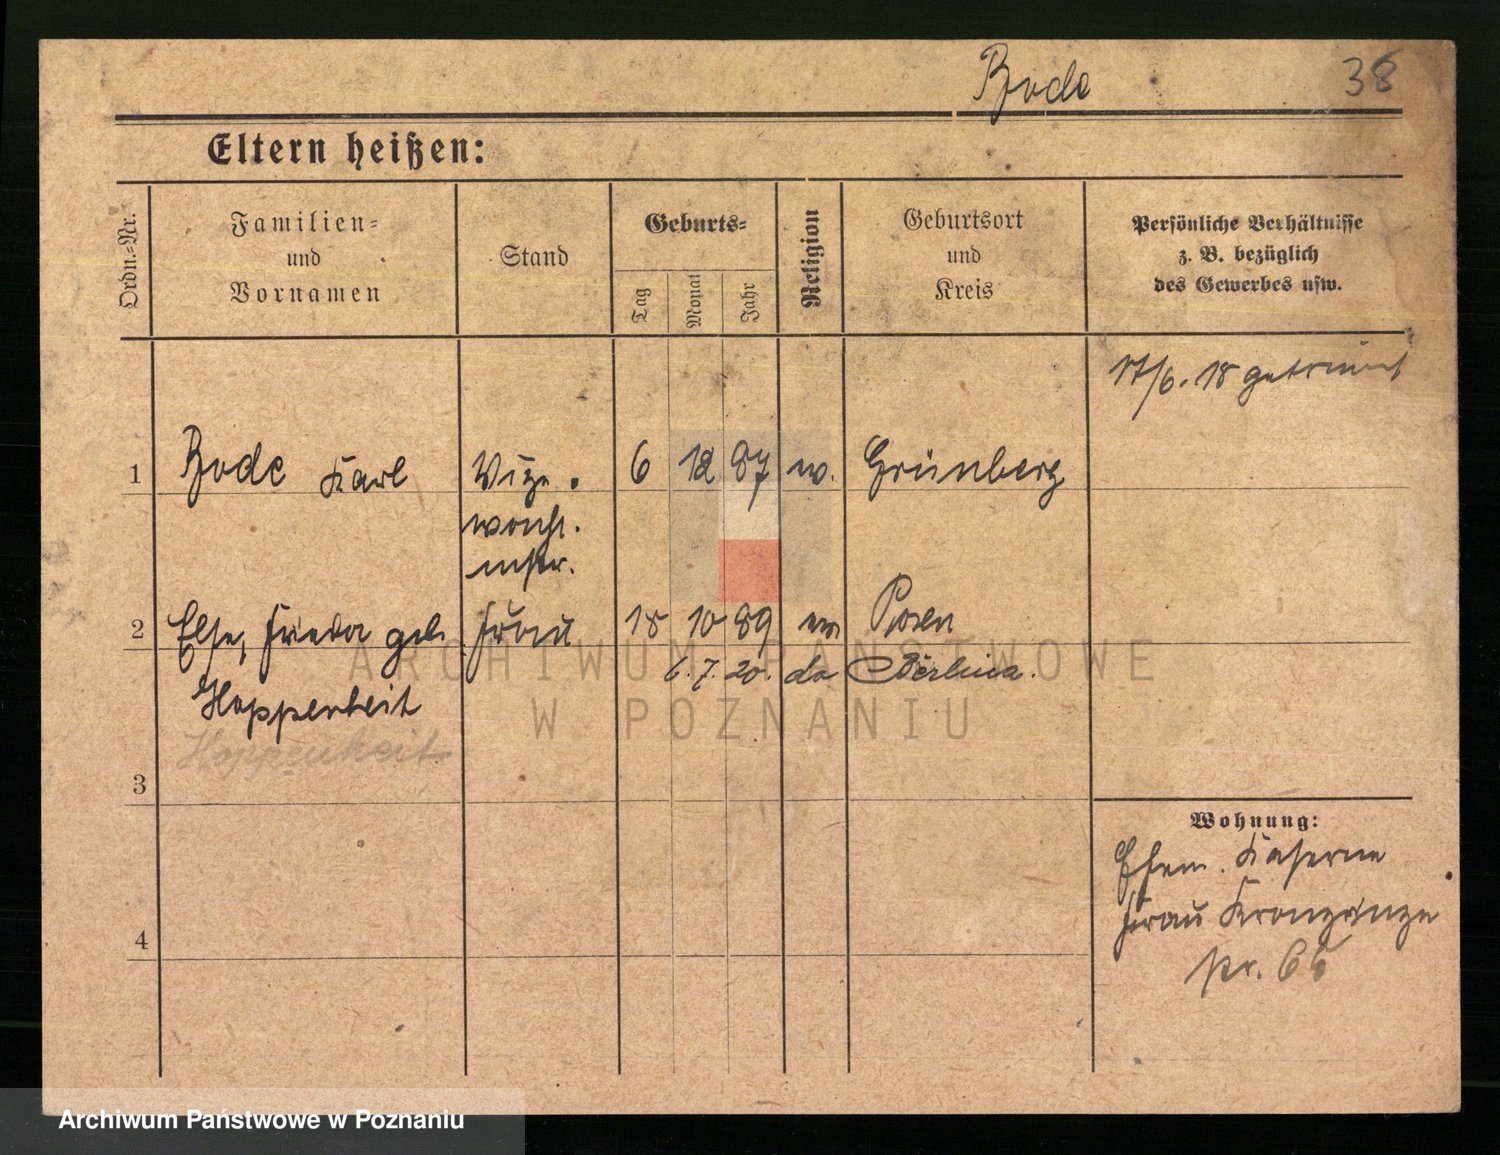 Bode 38
Eltern heißen:
Ordn.-Nr.
Familien-
und
Vornamen
Stand
Geburts-
Tag
Monat
Jahr
Religion
Geburtsort
und
Kreis
Persönliche Verhältnisse
z. B. bezüglich
des Gewerbes usw.
17/6. 18 getraut
1 Bode Karl Vize 6 12 87 ev. Grünberg
2 Else, Frieda geb. Frau 18 10 89 ev. Posen
6. 7. 20. do
Hoppenheit
Hoppenheit
3
Wohnung:
Kaserne
4
Frau
66
ARCHIWUM PAŃSTWOWE
W POZNANIU
Archiwum Państwowe w Poznaniu